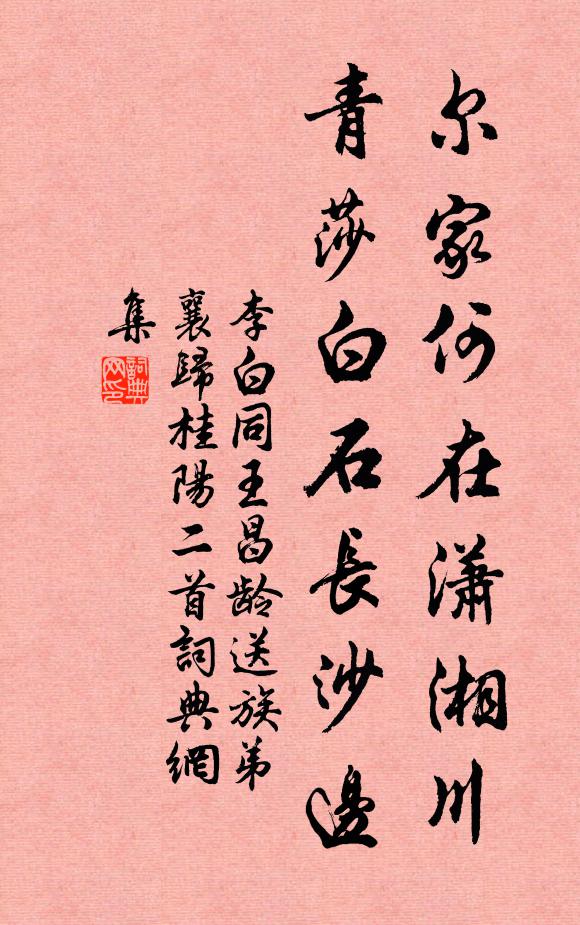 尔家何在潇湘川
青莎白石長沙邊
李白同王昌龄送族弟
襄歸桂陽二首詞典網
集
詞典
网印